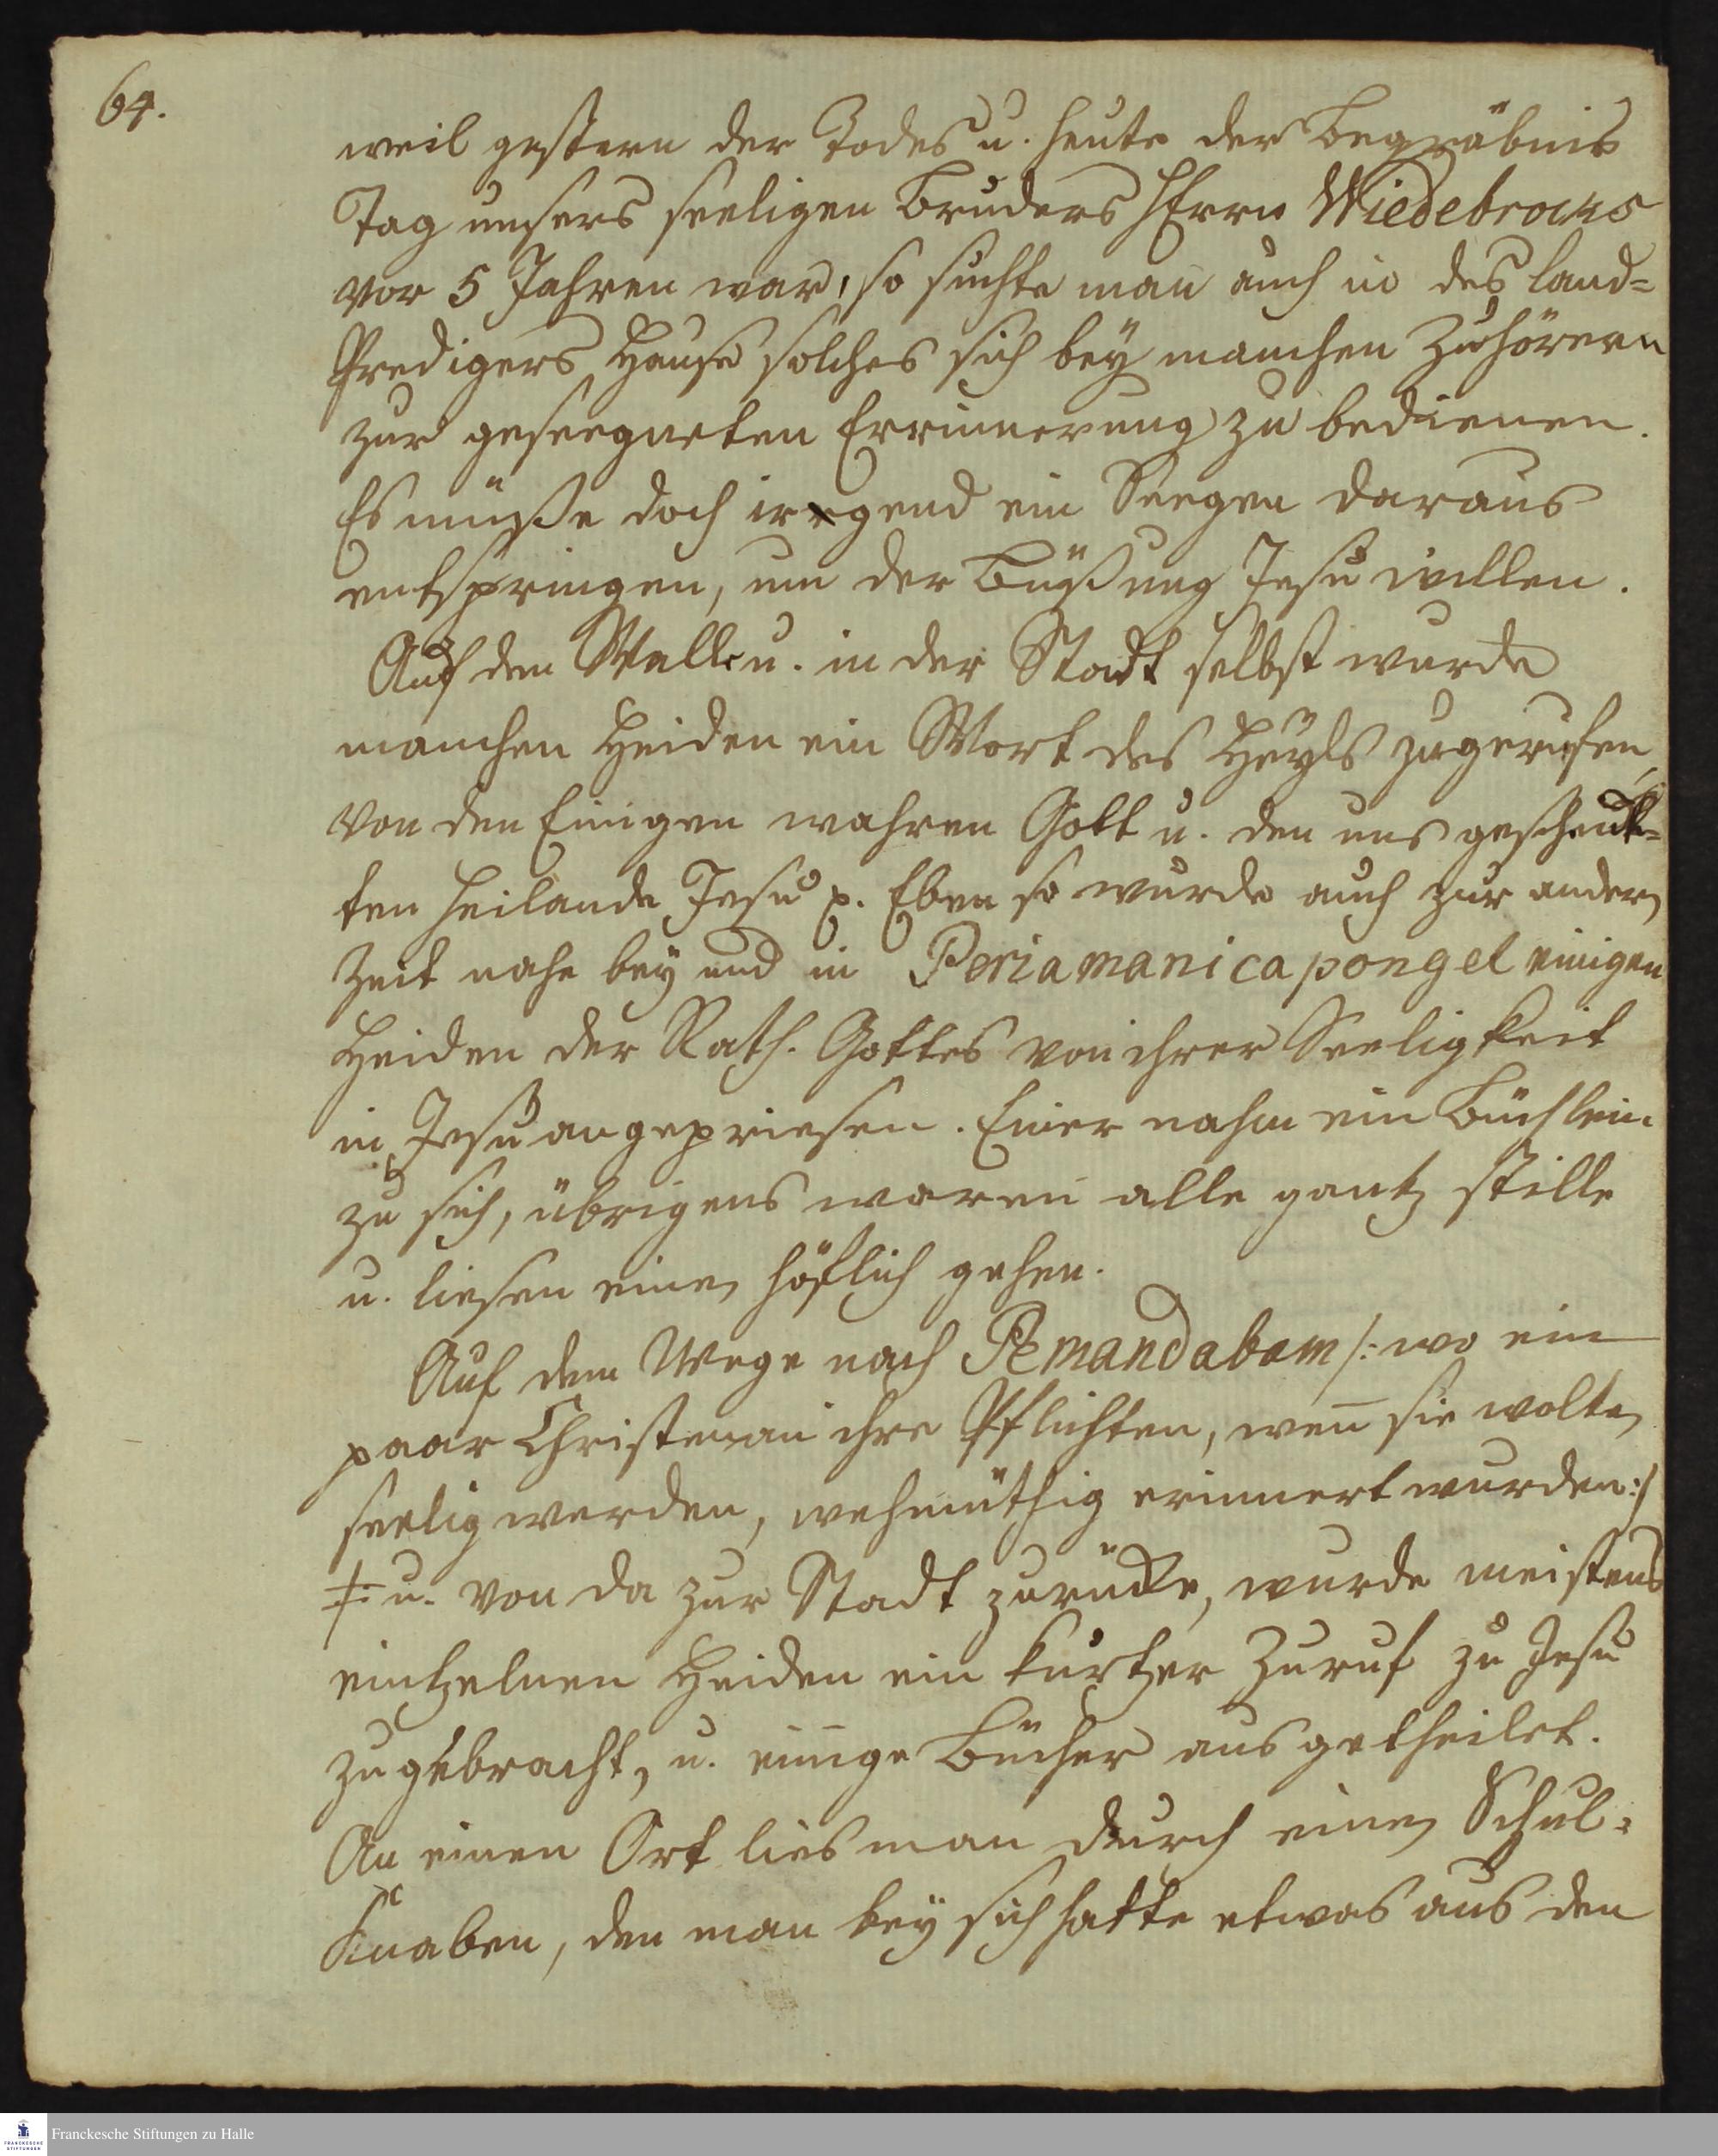 64.
weil gestern der Todes u. heute der Begräbnis
Tag unsers seeligen Bruders HErrn Wiedebrocks
vor 5 Jahren war, so suchte man auch in des Land=
Predigers Hause solches sich bey manchen Zuhörern
zur geseegneten Errinnerung zu bedienen.
Es müße doch irgend ein Seegen daraus
entspringen, um der Büßung Jesu willen.
Auf dem Walle u. in der Stadt selbst wurde
manchen Heiden ein Wort des Heyls zugerufen,
von den Einigen wahren Gott u. den uns geschenk=
ten Heilande Jesu p. Eben so wurde auch zur andern
Zeit nahe bey und in Periamanicapongel einigen
Heiden der Rath Gottes von ihrer Seeligkeit
in Jesu angepriesen. Einer nahm ein Büchlein
zu sich, übrigens waren alle gantz stille
u. liesen einen höflich gehen.
Auf dem Wege nach Pemandabam /: wo ein
paar Christen an ihre Pflichten, wen̄ sie wolten
seelig werden, wehmüthig erinnert wurden :/
u. von da zur Stadt zurücke, wurde meistens
eintzelnen Heiden ein kurtzer Zuruf zu Jesu
zugebracht, u. einige Bücher ausgetheilet.
An einen Ort lies man durch einen Schul=
Knaben, den man bey sich hatte etwas aus den
Franckesche Stiftungen zu Halle